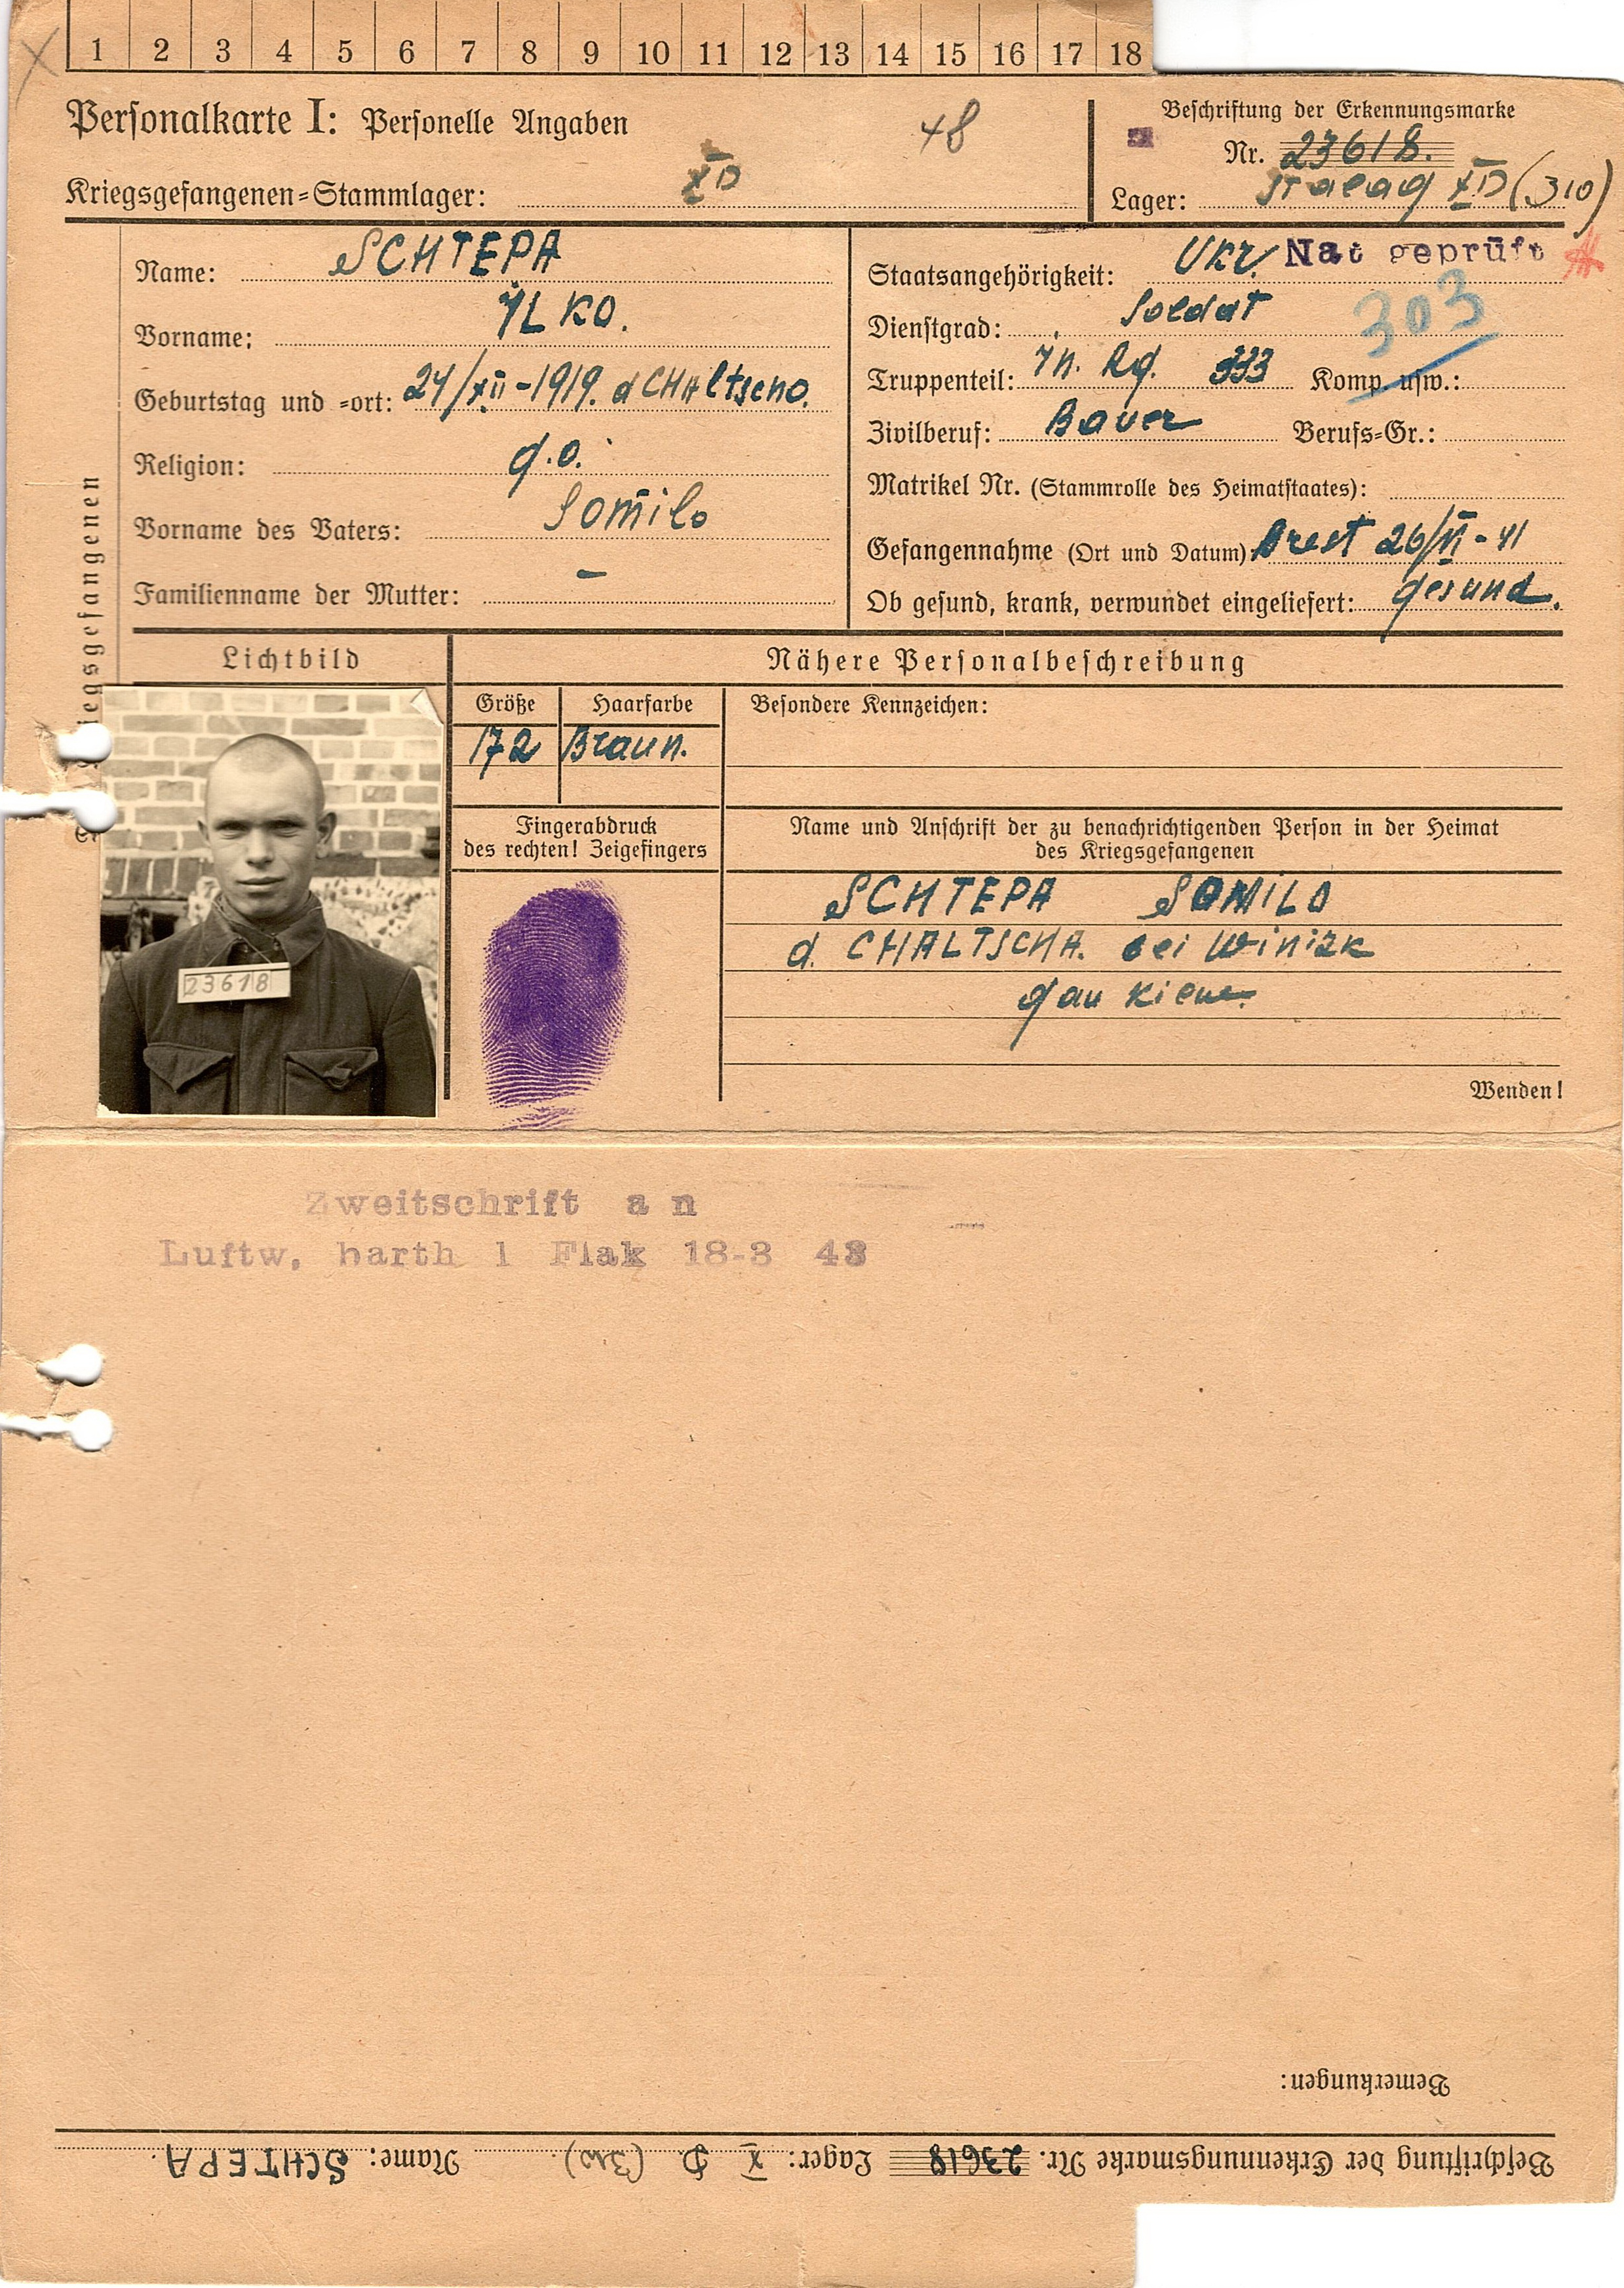 1 2 3 4 5 6 7 8 9 10 11 12 13 14 15 16 17 18
Personalkarte I: Personelle Angaben
48
Beschriftung der Erkennungsmarke
Nr. 23618.
Kriegsgefangenen=Stammlager: XD
Lager: Stalag XD (310)
Name: SCHTEPA
Vorname: ILKO.
Geburtstag und =ort: 24/XII-1919. d CHAltscho.
Religion: g.o.
Vorname des Vaters: Somilo
Familienname der Mutter: –
Staatsangehörigkeit: Ukr. Nat geprüft
Dienstgrad: Soldat
303
Truppenteil: In. Rg. 333 Komp. usw.:
Zivilberuf: Bauer Berufs=Gr.:
Matrikel Nr. (Stammrolle des Heimatstaates):
Gefangennahme (Ort und Datum) Brest 26/VI-41
Ob gesund, krank, verwundet eingeliefert: gesund.
iegsgefangenen
Lichtbild
23618
Nähere Personalbeschreibung
Größe Haarfarbe Besondere Kennzeichen:
172 Braun.
Fingerabdruck
des rechten! Zeigefingers
Name und Anschrift der zu benachrichtigenden Person in der Heimat
des Kriegsgefangenen
SCHTEPA SOMILO
d. CHALTSCHA. bei Winizk
gau Kiew.
Wenden!
Zweitschrift an
Luftw. barth 1 Flak 18-3 43
Bemerkungen:
Beschriftung der Erkennungsmarke Nr. 23618 Lager: X D. (310). Name: SCHTEPA.